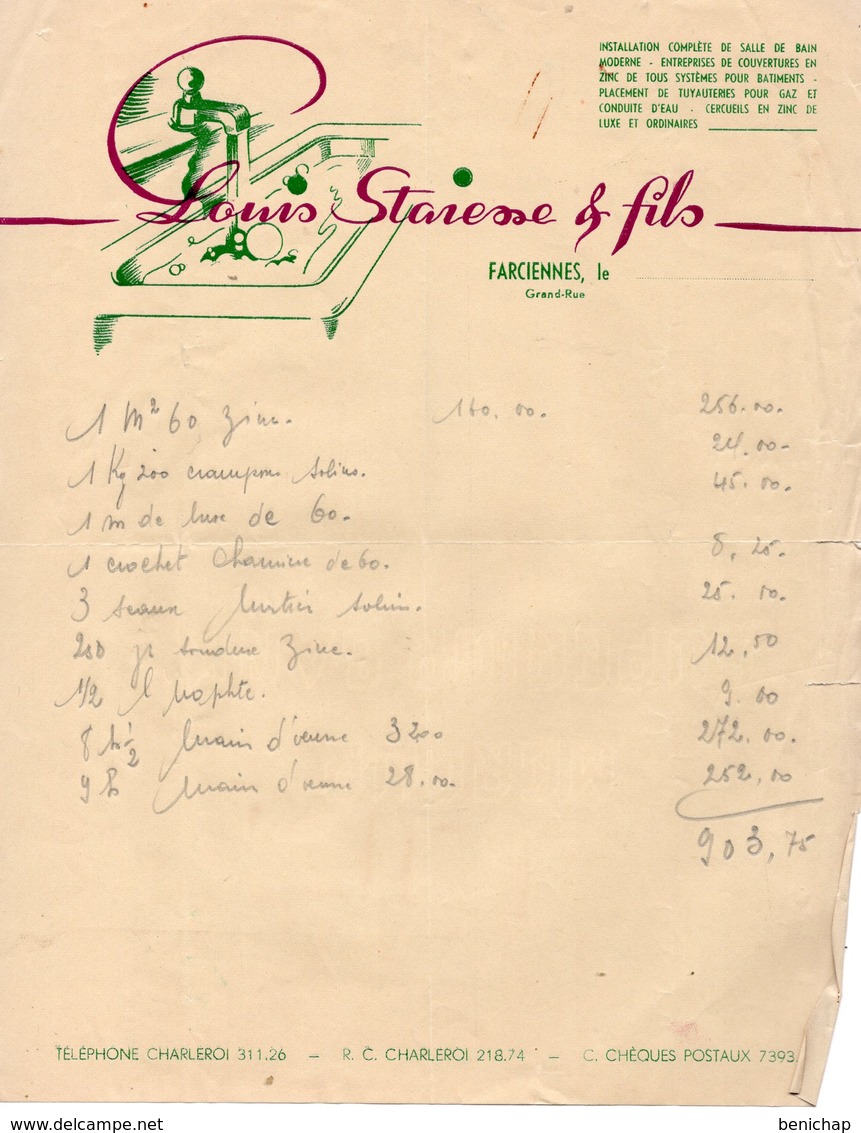 INSTALLATION COMPLÈTE DE SALLE DE BAIN
MODERNE - ENTREPRISES DE COUVERTURES EN
ZINC DE TOUS SYSTÈMES POUR BATIMENTS -
PLACEMENT DE TUYAUTERIES POUR GAZ ET
CONDUITE D'EAU - CERCUEILS EN ZINC DE
LUXE ET ORDINAIRES
Louis Staiesse & fils
FARCIENNES, le
Grand-Rue
1 m² 60 zinc. 160.00. 256.00.
1 Kg 200 crampons solins. 24.00.
1 m de buse de 60. 45.00.
1 crochet cheminée de 60. 8,25.
3 seaux mortier solin. 25.00.
250 gr soudure zinc. 12,50
1/2 l naphte. 9.00
8 h 1/2 main d'œuvre 32.00 272.00.
9 h main d'œuvre 28.00. 252,00
903,75
TÉLÉPHONE CHARLEROI 311.26 — R. C. CHARLEROI 218.74 — C. CHÈQUES POSTAUX 7393
www.delcampe.net
benichap